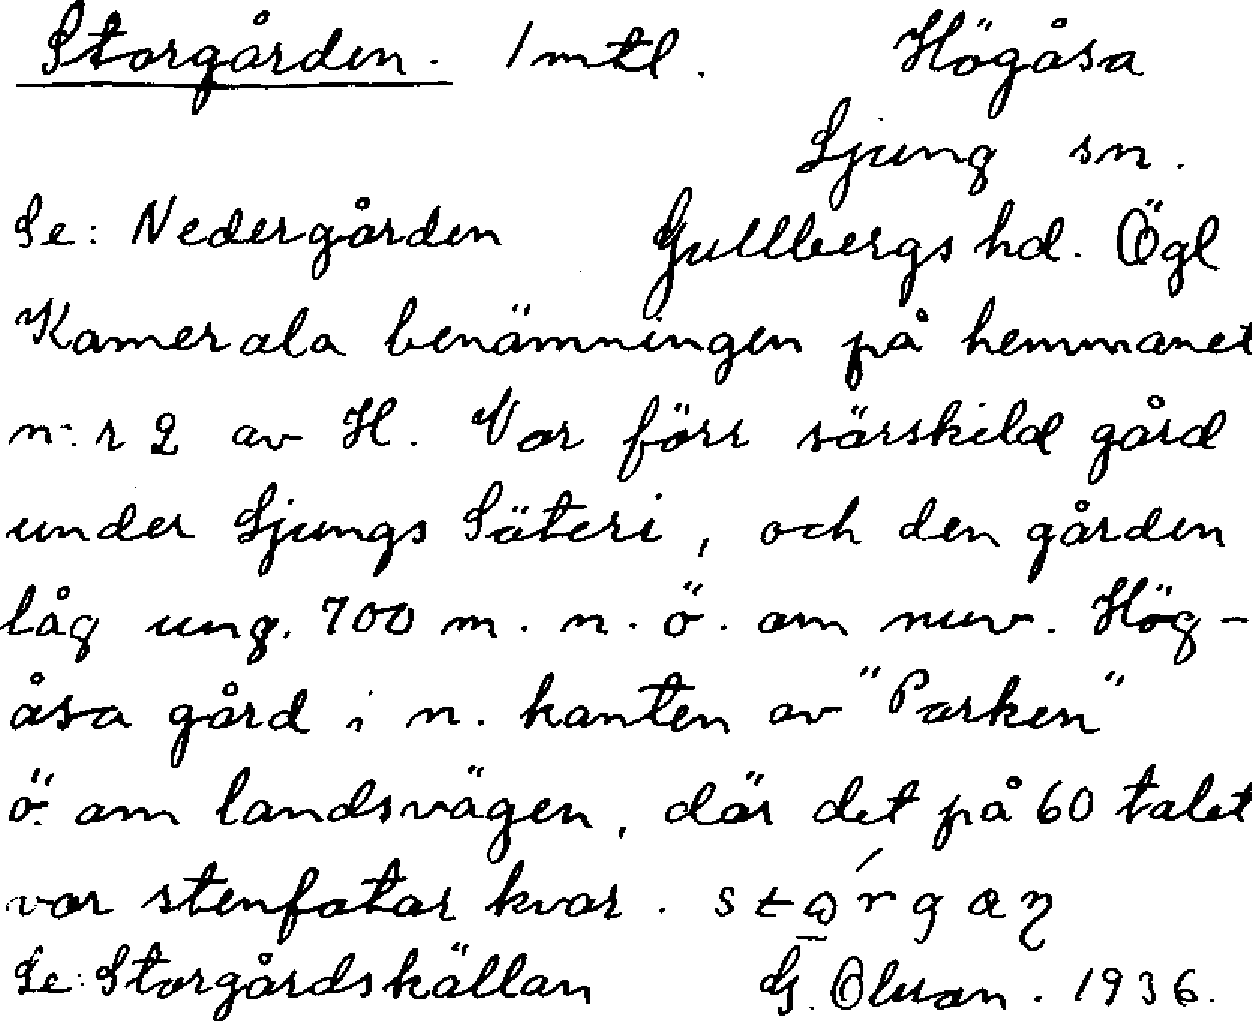 Storgården. 1 mtl. Högåsa
Ljung sn.
Se: Nedergården Gullbergs hd. Ögl
Kamerala benämningen på hemmanet
n:r 2 av H. Var förr särskild gård
under Ljungs Säteri, och den gården
låg ung. 700 m. n. ö. om nuv. Hög-
åsa gård i n. kanten av "Parken"
ö. om landsvägen, där det på 60 talet
var stenfotar kvar.
Se: Storgårdskällan G. Olsson. 1936.